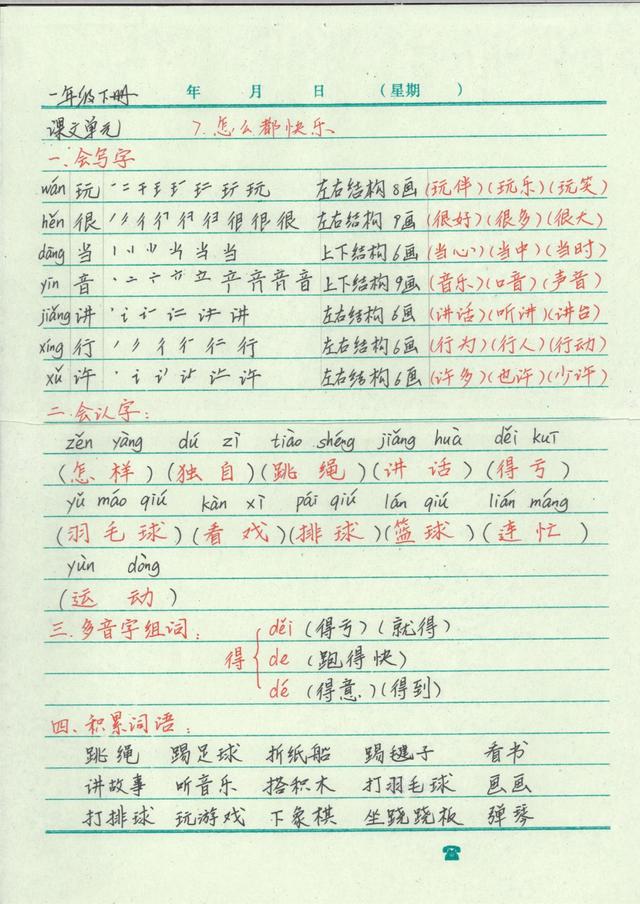 一年级下册 年 月 日 (星期 )
课文单元 7.怎么都快乐
一.会写字
wán 玩 玩 左右结构 8画 (玩伴)(玩乐)(玩笑)
hěn 很 很 很 左右结构 9画 (很好)(很多)(很大)
dāng 当 当 当 上下结构 6画 (当心)(当中)(当时)
yīn 音 音 音 上下结构 9画 (音乐)(口音)(声音)
jiǎng 讲 讲 左右结构 6画 (讲话)(听讲)(讲台)
xíng 行 行 左右结构 6画 (行为)(行人)(行动)
xǔ 许 许 左右结构 6画 (许多)(也许)(少许)
二.会认字:
zěn yàng dú zì tiào shéng jiǎng huà děi kuī
(怎样)(独自)(跳绳)(讲话)(得亏)
yǔ máo qiú kàn xì pái qiú lán qiú lián máng
(羽毛球)(看戏)(排球)(篮球)(连忙)
yùn dòng
(运动)
三.多音字组词:
děi (得亏)(就得)
得 de (跑得快)
dé (得意)(得到)
四.积累词语:
跳绳 踢足球 折纸船 踢毽子 看书
讲故事 听音乐 搭积木 打羽毛球 画画
打排球 玩游戏 下象棋 坐跷跷板 弹琴